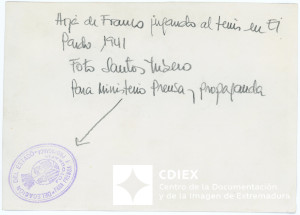 Hija de Franco jugando al tenis en El
Pardo 1941
Foto Santos Yubero
Para Ministerio Prensa y propaganda
CDIEX
Centro de la Documentación
y de la Imagen de Extremadura